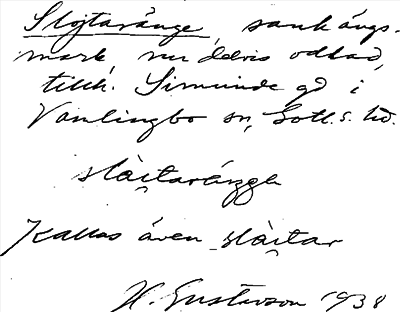 Slojtaränge, sank ängs-
mark, nu delvis odlad,
tillh. Sirmunde gd i
Vamlingbo sn, Gotl. s. hd.
slàitaráŋgė
Kallas även slàitar
H. Gustavson 1938